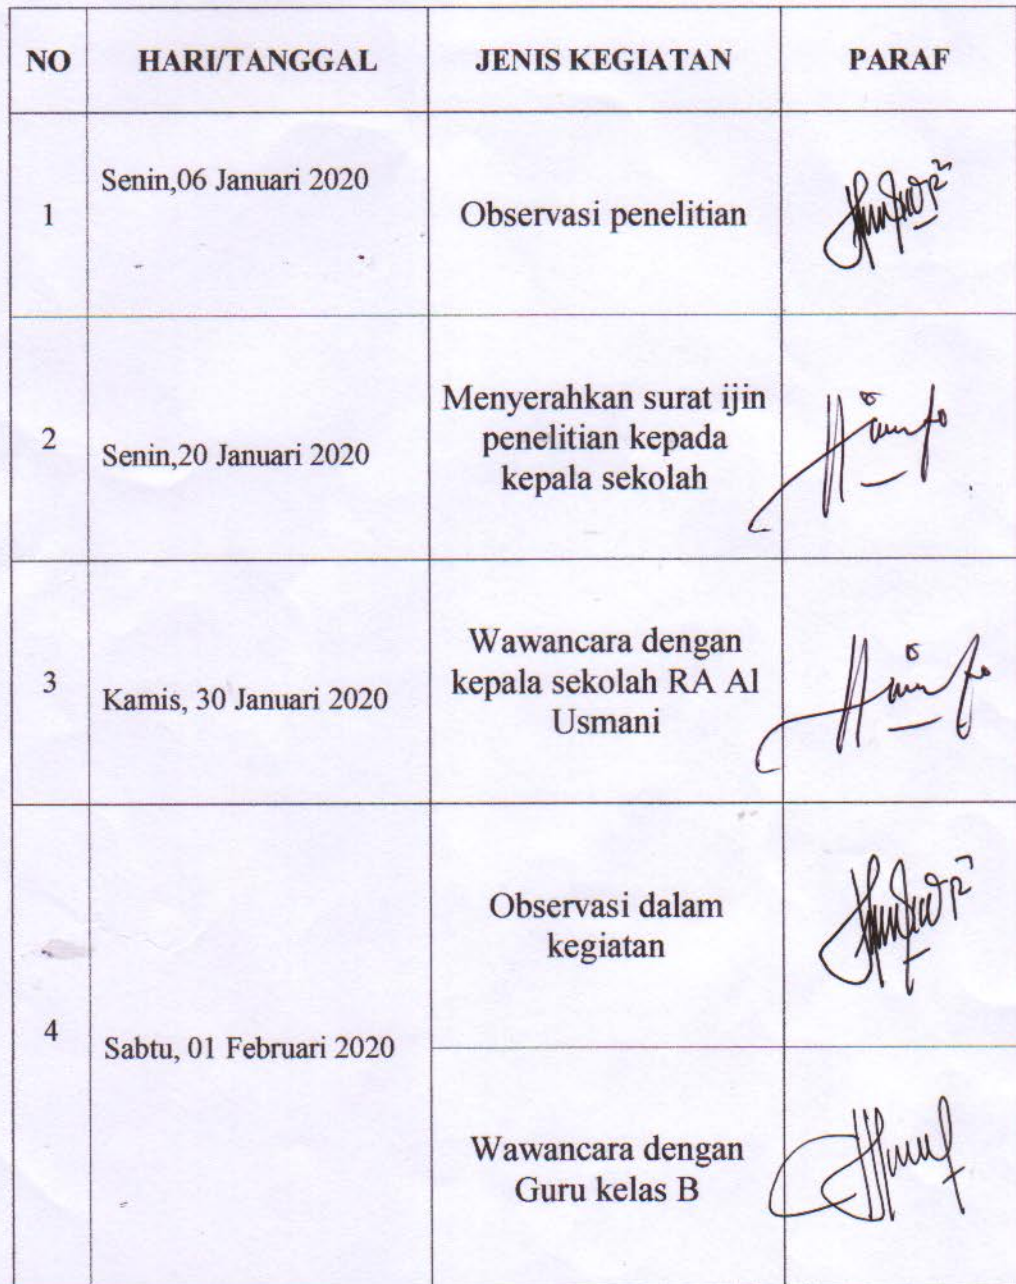 NO HARI/TANGGAL JENIS KEGIATAN PARAF
1 Senin,06 Januari 2020 Observasi penelitian
2 Senin,20 Januari 2020 Menyerahkan surat ijin
penelitian kepada
kepala sekolah
3 Kamis, 30 Januari 2020 Wawancara dengan
kepala sekolah RA Al
Usmani
4 Sabtu, 01 Februari 2020 Observasi dalam
kegiatan
Wawancara dengan
Guru kelas B